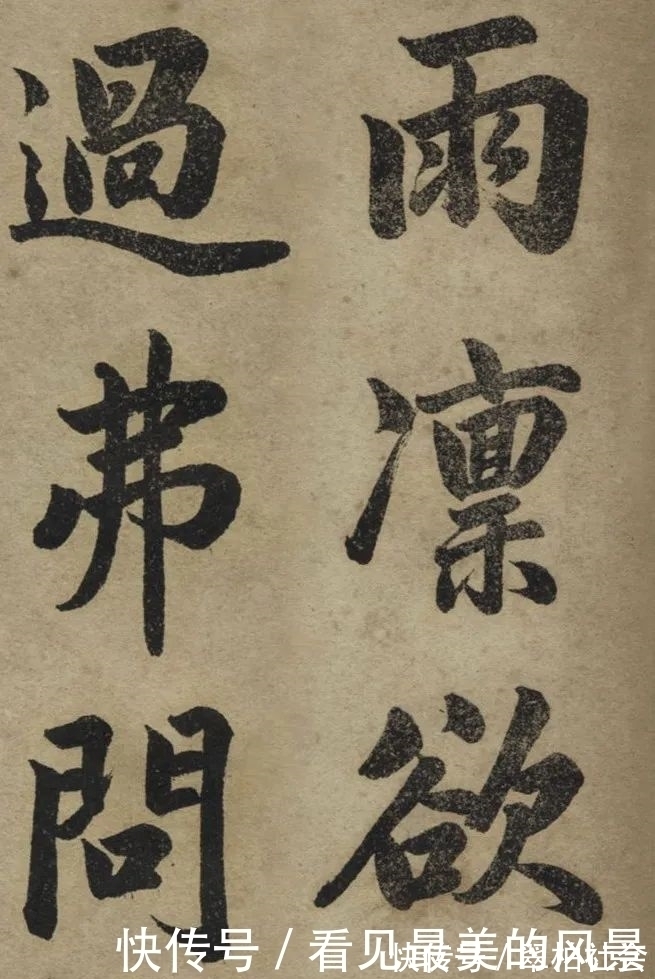 雨凛欲
過弗問
快传号 / 看见最美的风景